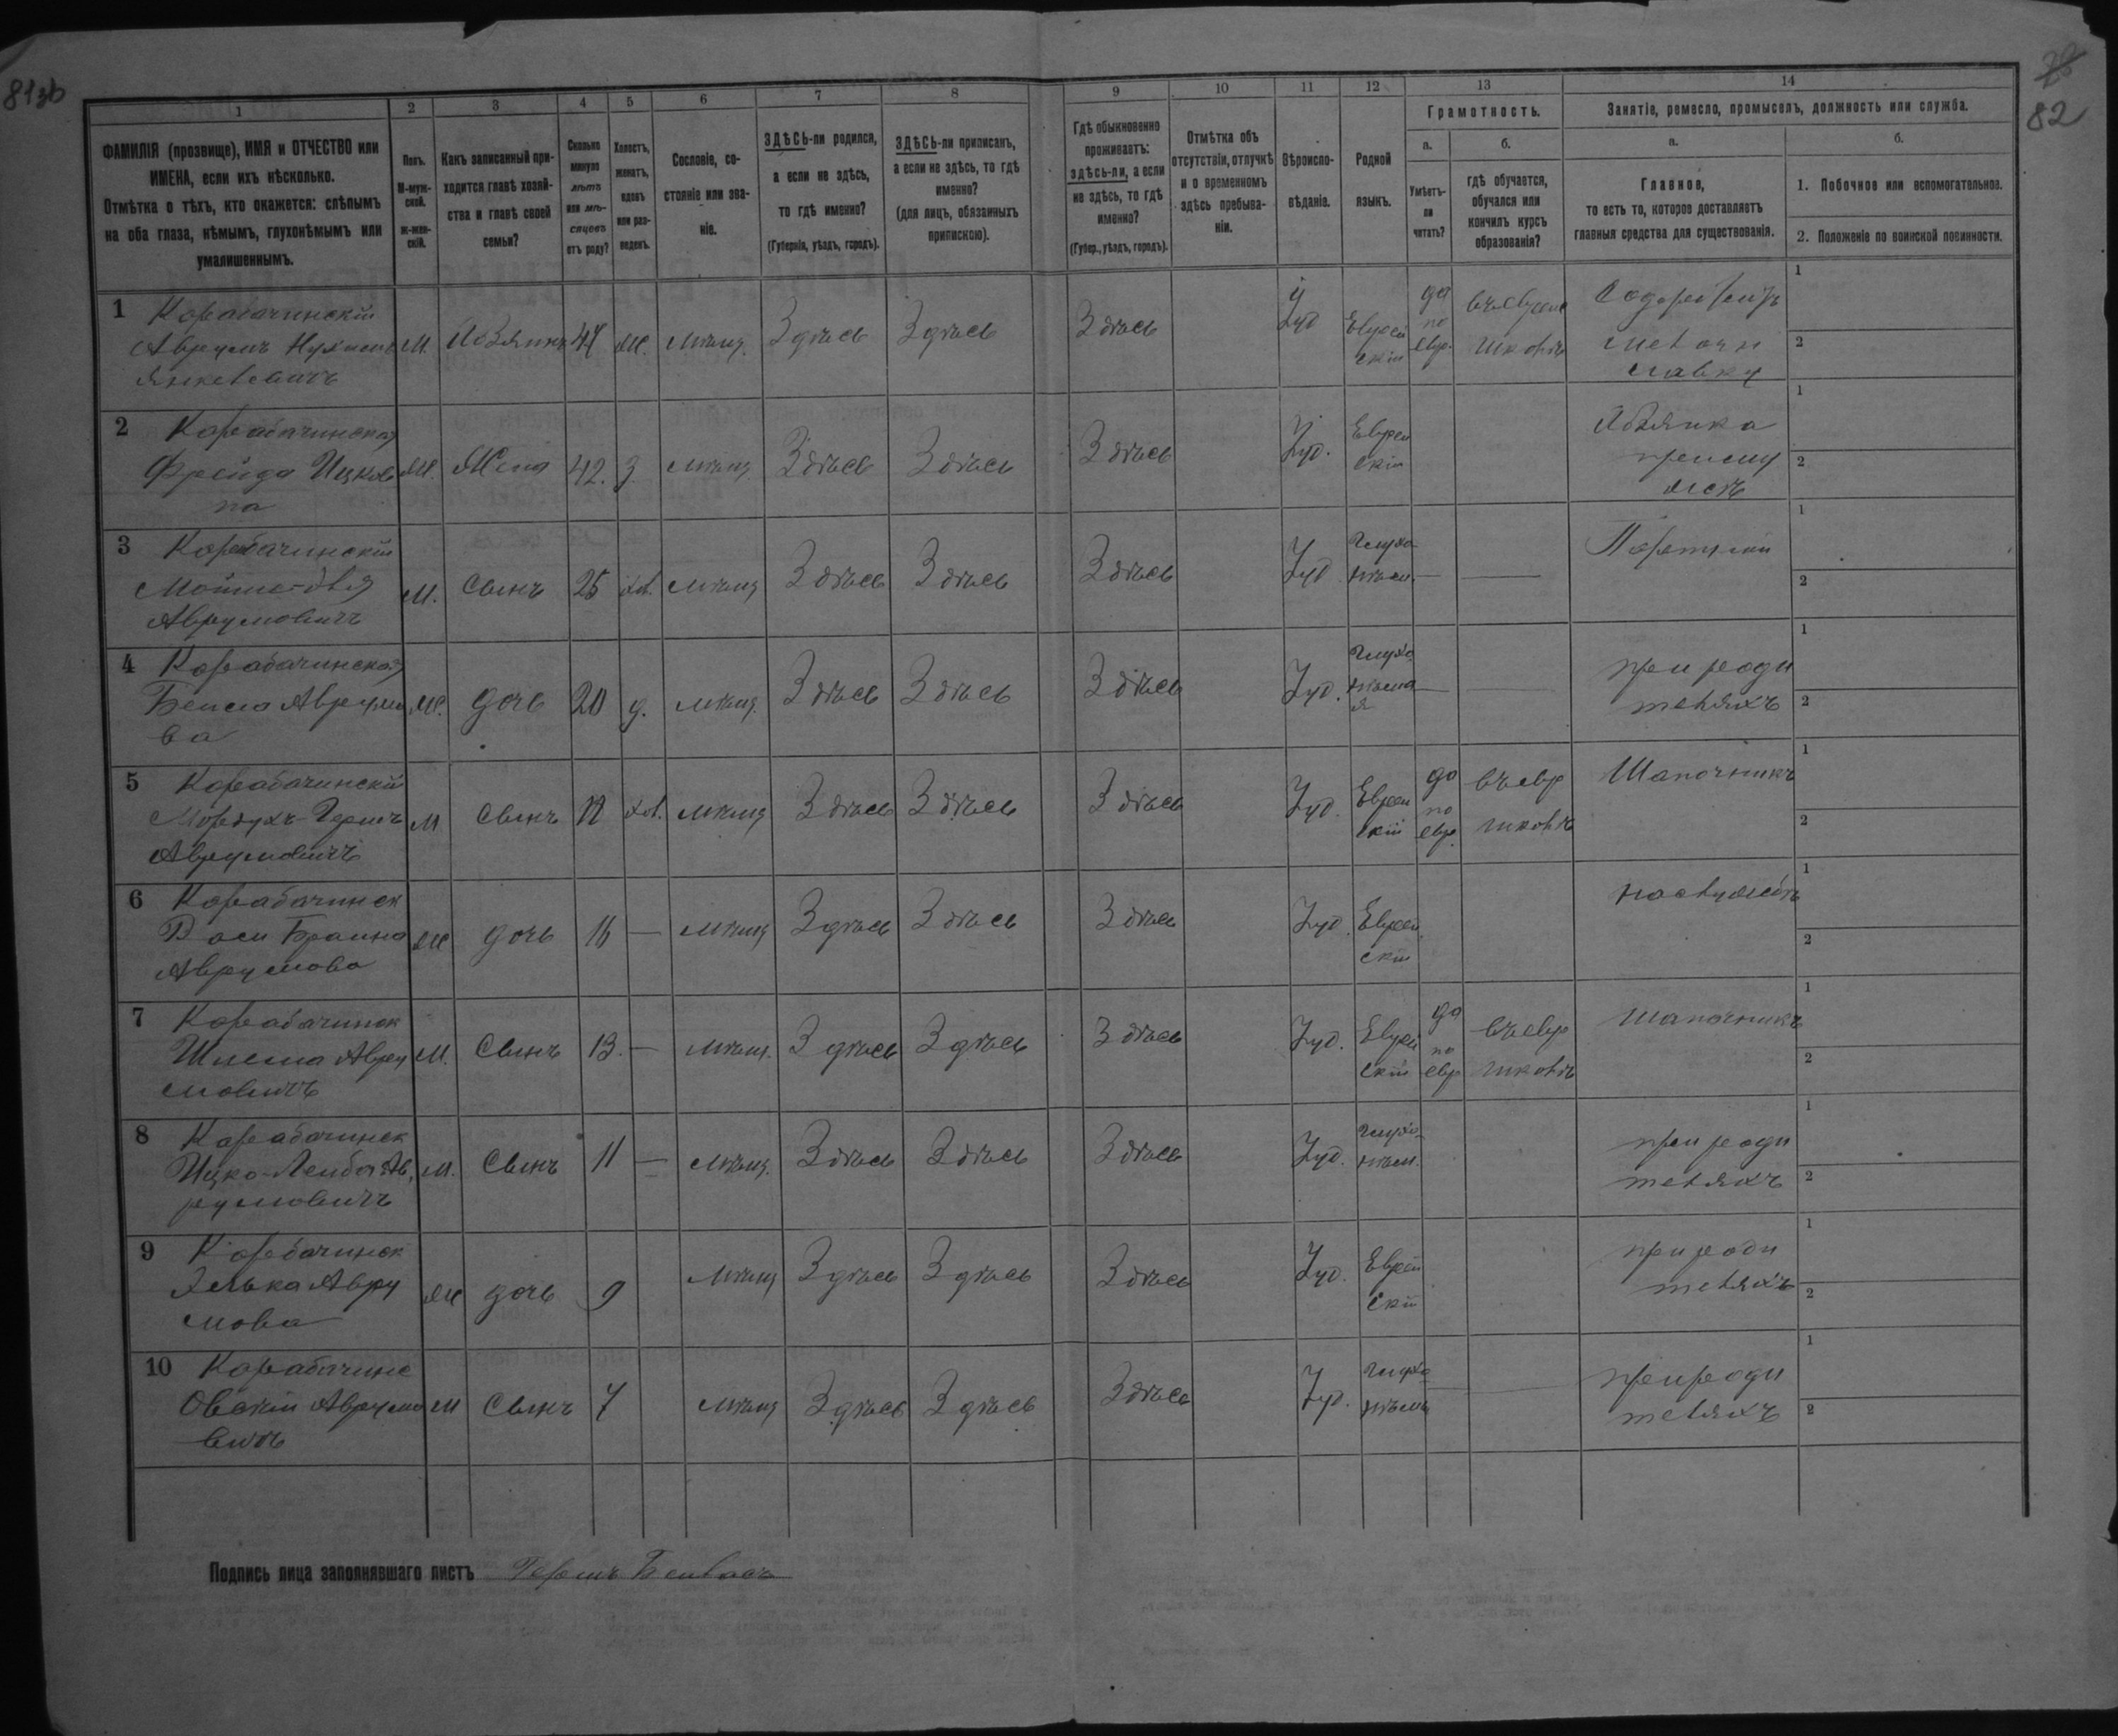 81зб
82
1 2 3 4 5 6 7 8 9 10 11 12 13 14
ФАМИЛІЯ (прозвище), ИМЯ и ОТЧЕСТВО или
ИМЕНА, если ихъ нѣсколько.
Отмѣтка о тѣхъ, кто окажется: слѣпымъ
на оба глаза, нѣмымъ, глухонѣмымъ или
умалишеннымъ.
Полъ.
М-муж-
ской.
ж-жен-
скій.
Какъ записанный при-
ходится главѣ хозяй-
ства и главѣ своей
семьи?
Сколько
минуло
лѣтъ
или мѣ-
сяцевъ
отъ роду?
Холостъ,
женатъ,
вдовъ
или раз-
веденъ.
Сословіе, со-
стояніе или зва-
ніе.
ЗДѢСЬ-ли родился,
а если не здѣсь,
то гдѣ именно?
(Губернія, уѣздъ, городъ).
ЗДѢСЬ-ли приписанъ,
а если не здѣсь, то гдѣ
именно?
(для лицъ, обязанныхъ
припискою).
Гдѣ обыкновенно
проживаетъ:
здѣсь-ли, а если
не здѣсь, то гдѣ
именно?
(Губер., уѣздъ, городъ).
Отмѣтка объ
отсутствіи, отлучкѣ
и о временномъ
здѣсь пребыва-
ніи.
Вѣроиспо-
вѣданіе.
Родной
языкъ.
Грамотность.
а.
Умѣетъ-
ли
читать?
б.
гдѣ обучается,
обучался или
кончилъ курсъ
образованія?
Занятіе, ремесло, промыселъ, должность или служба.
а.
Главное,
то есть то, которое доставляетъ
главныя средства для существованія.
б.
1. Побочное или вспомогательное.
2. Положеніе по воинской повинности.
1 Корабачинскій
Аврумъ
Янкелевичъ
М. Хозяинъ 44 ж. мѣщ. Здѣсь Здѣсь Здѣсь Іуд Еврей
скій
да
по
евр.
въ еврейс
школѣ
Содержитъ
мелочн
лавку
1
2
2 Корабачинская
Фрейда Ицков
на
Ж. Жена 42. З. мѣщ Здѣсь Здѣсь Здѣсь Іуд. Еврей
скій
Хозяйка
при муж
1
2
3 Корабачинскій
Аврумовичъ
М. Сынъ 25 хол. мѣщ Здѣсь Здѣсь Здѣсь Іуд Глухо
нѣм. — —
Портной
1
2
4 Корабачинская
Бейла Аврумо
ва
Ж. дочь 20 д. мѣщ. Здѣсь Здѣсь Здѣсь Іуд. Глухо
нѣма
я — —
при роди
теляхъ
1
2
5 Корабачинскій
Мордухъ-Гершъ
Аврумовичъ
М Сынъ хол. мѣщ Здѣсь Здѣсь Здѣсь Іуд. Еврей
скій
да
по
евр.
въ евр
школѣ
Шапочникъ
1
2
6 Корабачинск
Брайна
Аврумова
Ж дочь 16 — мѣщ Здѣсь Здѣсь Здѣсь Іуд. Еврей
скій
1
2
7 Корабачинск
Шлема Авру
мовичъ
М. Сынъ 13. — мѣщ. Здѣсь Здѣсь Здѣсь Іуд. Еврей
скій
да
по
евр
въ евр
школѣ
шапочникъ
1
2
8 Корабачинск
Ицко-Лейба Ав
румовичъ
М. Сынъ 11 — мѣщ. Здѣсь Здѣсь Здѣсь Іуд. Глухо
нѣм.
при роди
теляхъ
1
2
9 Корабачинск
Элька Авру
мова
Ж дочь 9 мѣщ Здѣсь Здѣсь Здѣсь Іуд. Еврей
скій
при роди
теляхъ
1
2
10 Корабачинс
Овсій Аврумо
вичъ
М Сынъ 7 мѣщ Здѣсь Здѣсь Здѣсь Іуд. Глухо
нѣмъ
при роди
теляхъ
1
2
Подпись лица заполнявшаго листъ Гершъ